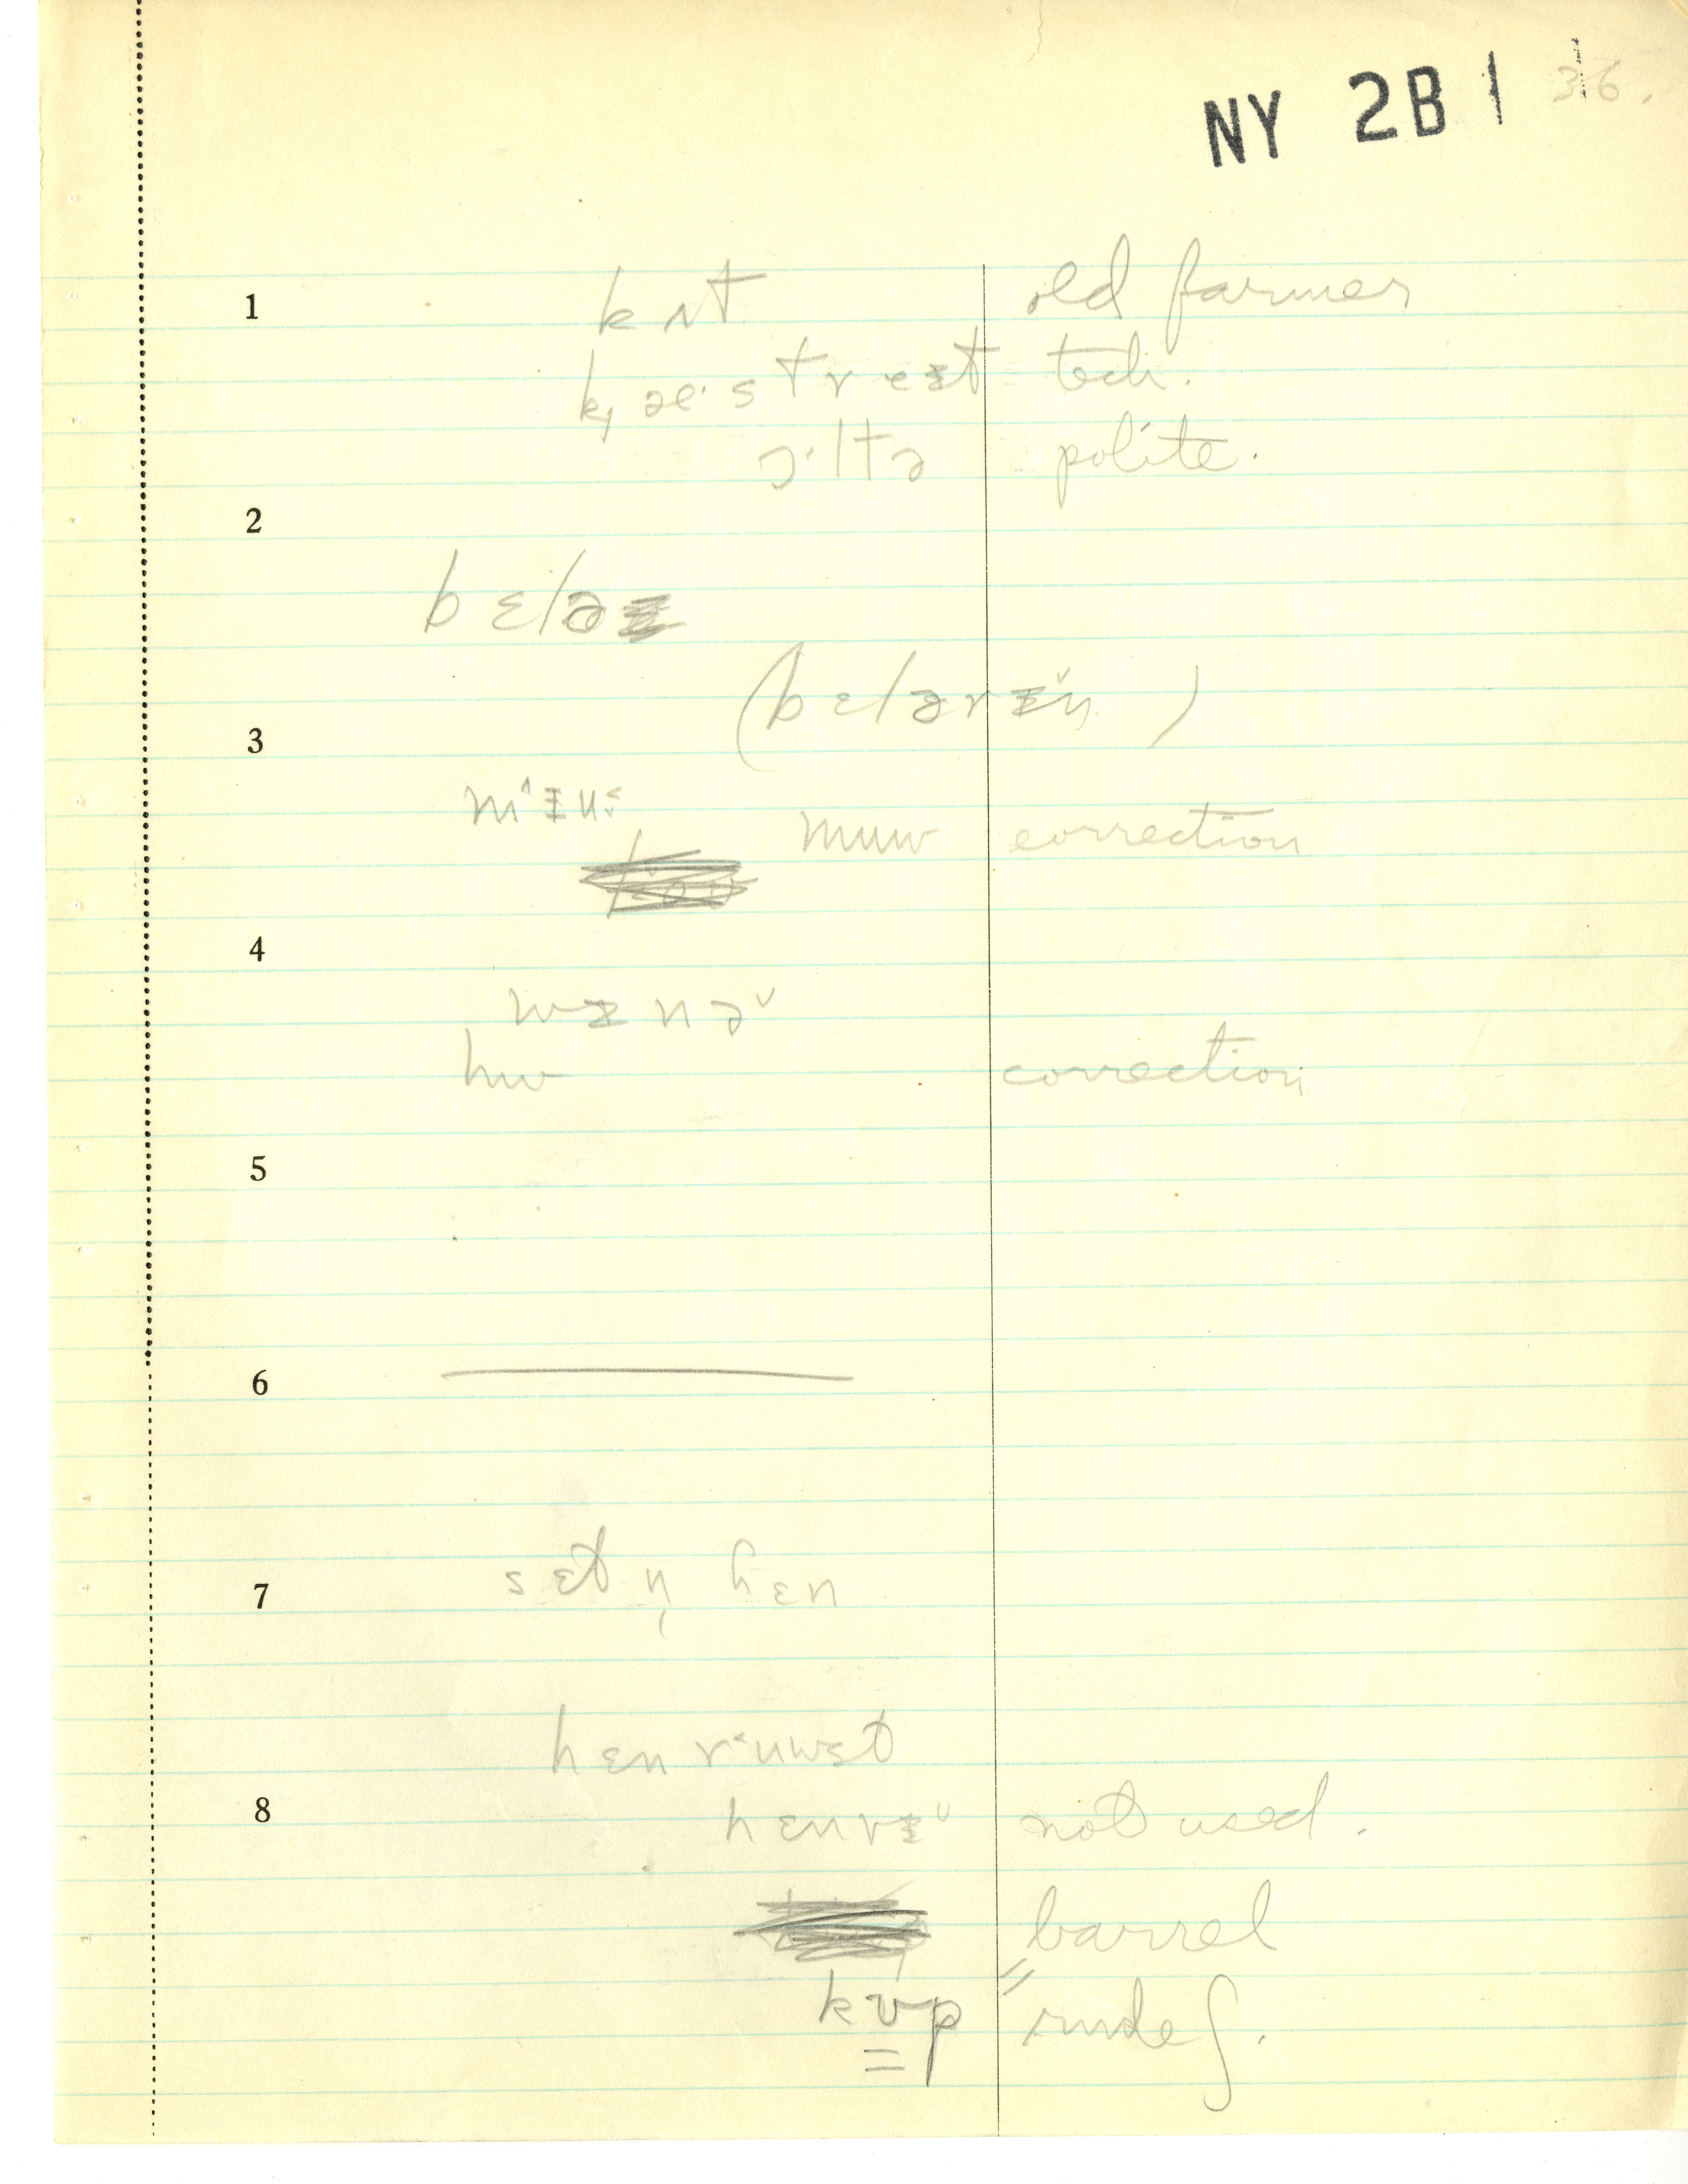 NY 2B 1 36.
1 kʌt old farmer
k̟æ·strᵻeᵻt tech.
ɔ·ltə polite.
2
bɛlə
(bɛlərᵻ˅ŋ)
3
m˄ᵻu˂
muw correction
4
wᵻnə˅
hw correction
5
6
7 sɛtn̩ hɛn
hɛnr˂uwst
8 hɛnrᵻ˅ not used.
barrel
kʊp " rude f.